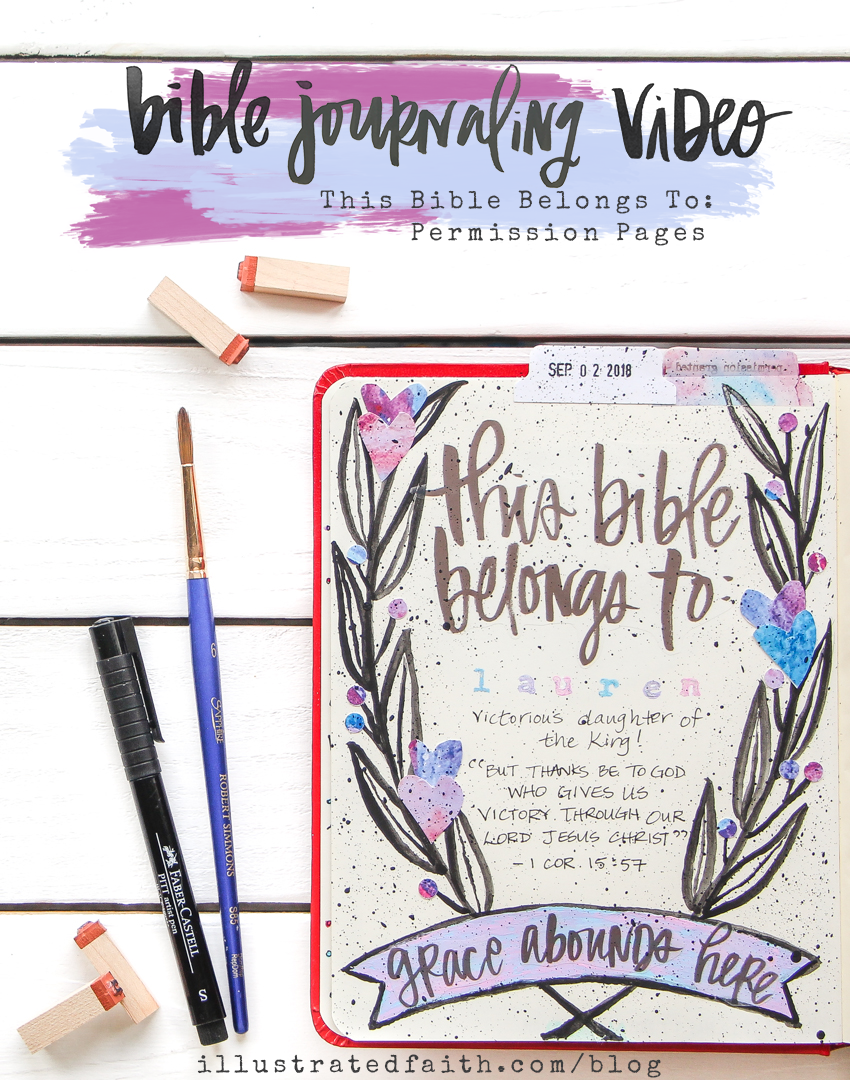 bible journaling video
This Bible Belongs To:
Permission Pages
SEP 02 2018
this bible
belongs to:
lauren
victorious daughter of
the King!
"BUT THANKS BE TO GOD
WHO GIVES US
VICTORY THROUGH OUR
LORD JESUS CHRIST"
- 1 COR. 15:57
grace abounds here
6
SAPPHIRE
ROBERT SIMMONS
S85
FABER-CASTELL
PITT artist pen
S
illustratedfaith.com/blog